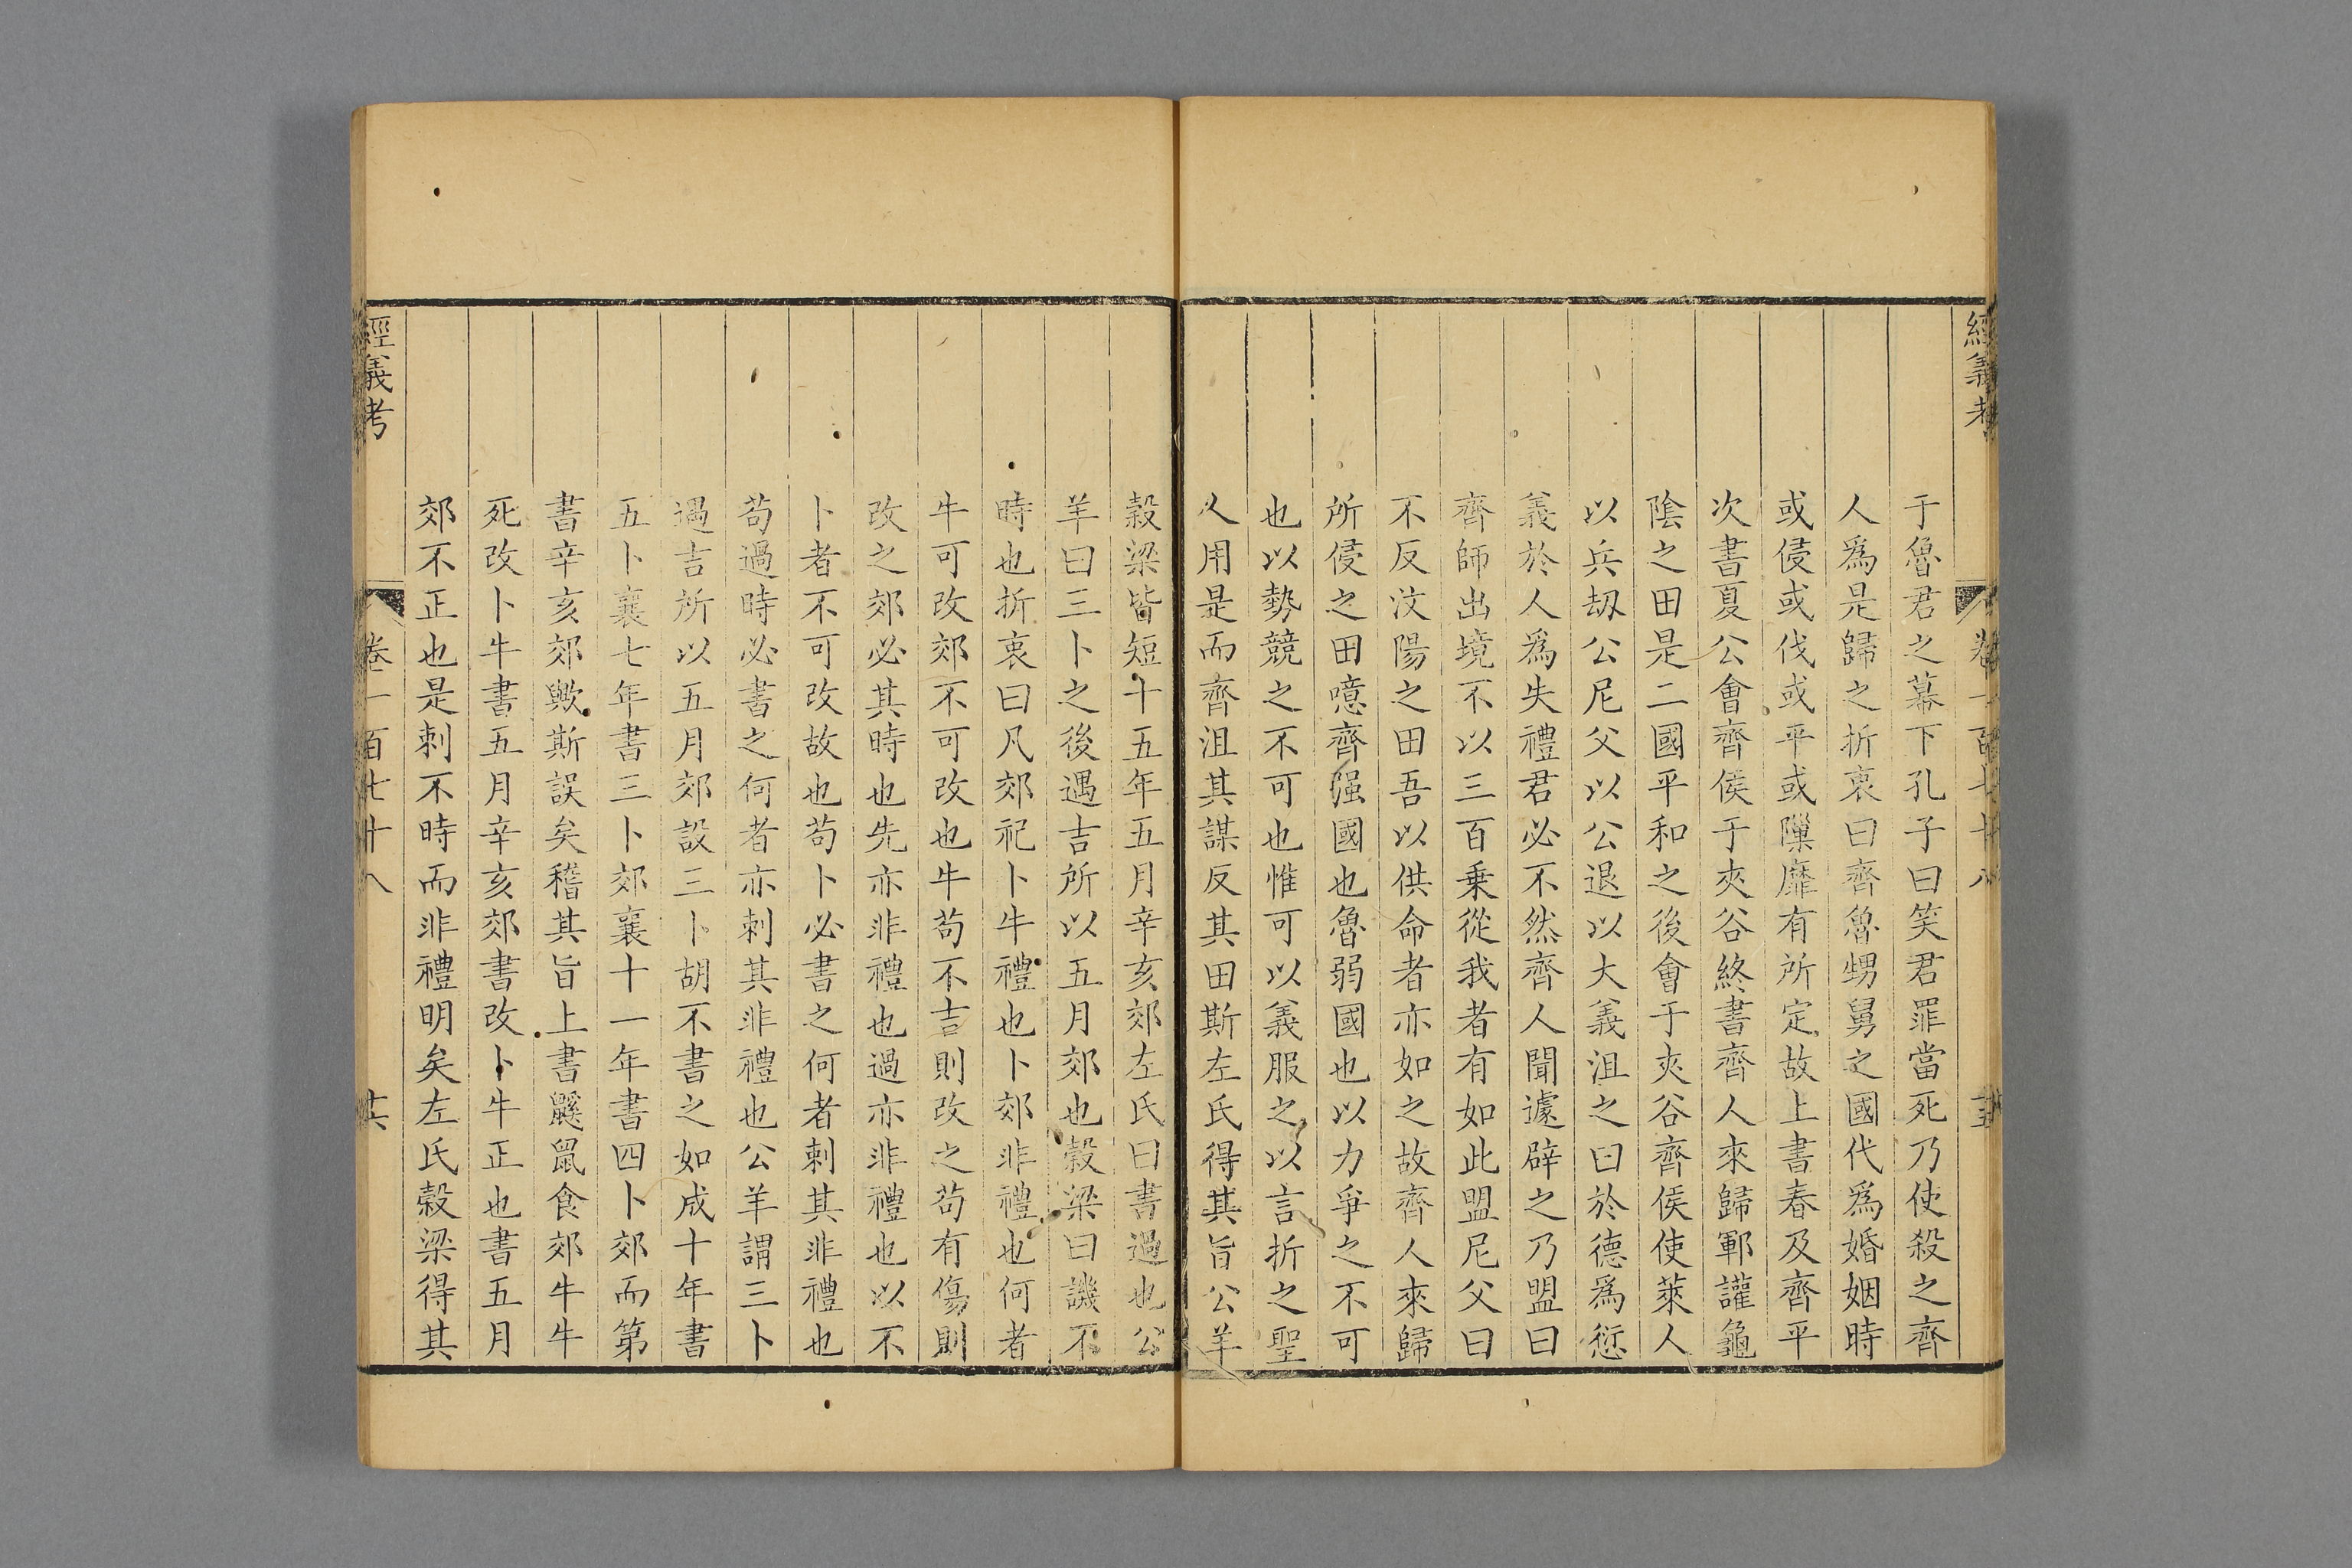 經義考 卷一百七十八
于魯君之幕下孔子曰笑君罪當死乃使殺之齊
人爲是歸之折衷曰齊魯甥舅之國代爲婚姻時
或侵或伐或平或隟靡有所定故上書春及齊平
次書夏公會齊侯于夾谷終書齊人來歸鄆讙龜
陰之田是二國平和之後會于夾谷齊侯使萊人
以兵刼公尼父以公退以大義沮之曰於德爲愆
義於人爲失禮君必不然齊人聞遽辟之乃盟曰
齊師出境不以三百乗從我者有如此盟尼父曰
不反汶陽之田吾以供命者亦如之故齊人來歸
所侵之田噫齊强國也魯弱國也以力爭之不可
也以勢競之不可也惟可以義服之以言折之聖
人用是而齊沮其謀反其田斯左氏得其旨公羊
穀梁皆短十五年五月辛亥郊左氏曰書過也公
羊曰三卜之後遇吉所以五月郊也穀梁曰譏不
時也折衷曰凡郊祀卜牛禮也卜郊非禮也何者
牛可改郊不可改也牛苟不吉則改之苟有傷則
改之郊必其時也先亦非禮也過亦非禮也以不
卜者不可改故也苟卜必書之何者刺其非禮也
苟過時必書之何者亦刺其非禮也公羊謂三卜
遇吉所以五月郊設三卜胡不書之如成十年書
五卜襄七年書三卜郊襄十一年書四卜郊而第
書辛亥郊歟斯誤矣稽其旨上書鼷鼠食郊牛牛
死改卜牛書五月辛亥郊書改卜牛正也書五月
郊不正也是刺不時而非禮明矣左氏穀梁得其
經義考 卷一百七十八